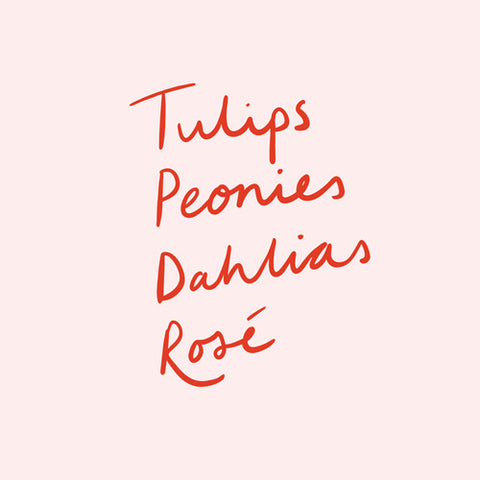 Tulips
Peonies
Dahlias
Rosé